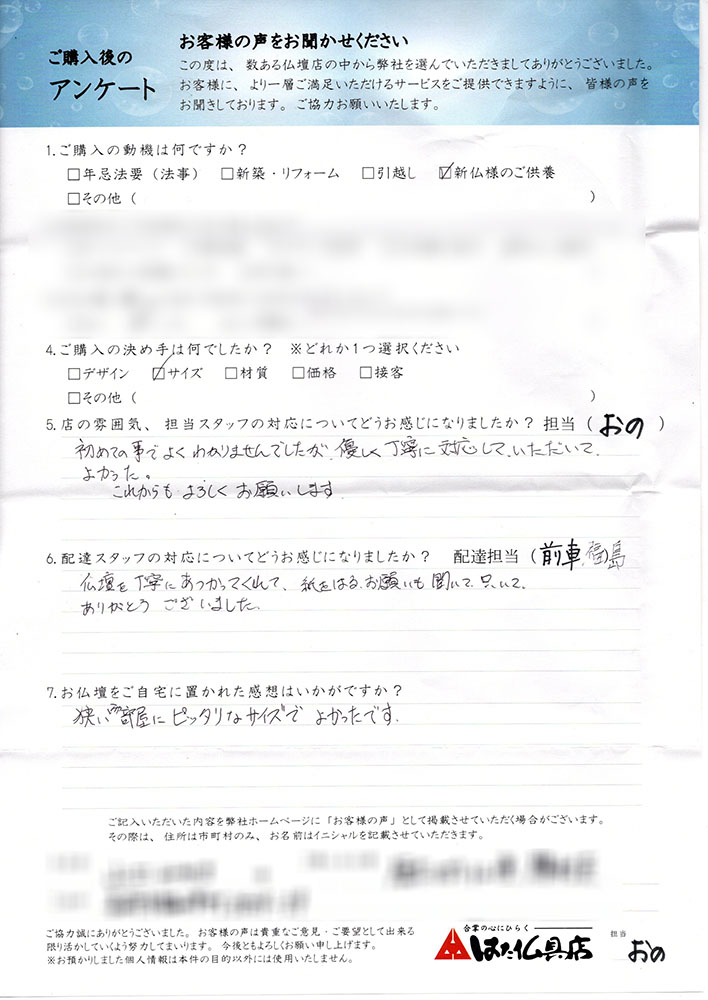 ご購入後の
アンケート
お客様の声をお聞かせください
この度は、数ある仏壇店の中から弊社を選んでいただきましてありがとうございました。
お客様に、より一層ご満足いただけるサービスをご提供できますように、皆様の声を
お聞きしております。ご協力お願いいたします。
1.ご購入の動機は何ですか？
□年忌法要（法事） □新築・リフォーム □引越し ☑新仏様のご供養
□その他（ ）
4.ご購入の決め手は何でしたか？ ※どれか1つ選択ください
□デザイン ☑サイズ □材質 □価格 □接客
□その他（ ）
5.店の雰囲気、担当スタッフの対応についてどうお感じになりましたか？担当（おの）
初めての事でよくわかりませんでしたが、優しく丁寧に対応していただいて、
よかった。
これからもよろしくお願いします
6.配達スタッフの対応についてどうお感じになりましたか？ 配達担当（前車、福島
仏壇を丁寧にあつかってくれて、紙をはるお願いも聞いて
ありがとうございました。
7.お仏壇をご自宅に置かれた感想はいかがですか？
狭い部屋にピッタリなサイズでよかったです。
ご記入いただいた内容を弊社ホームページに「お客様の声」として掲載させていただく場合がございます。
その際は、住所は市町村のみ、お名前はイニシャルを記載させていただきます。
ご協力誠にありがとうございました。お客様の声は貴重なご意見・ご要望として出来る
限り活かしていくよう努力してまいります。今後ともよろしくお願い申し上げます。
※お預かりしました個人情報は本件の目的以外には使用いたしません。
合掌の心にひらく
はた仏具店
担当
おの